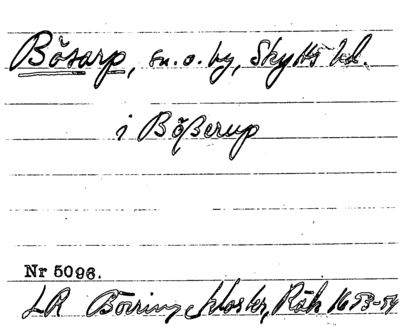 Bösarp, sn. o. by, Skytts hd.
i Bößerup
Nr 5096.
LR Börringe kloster, Räk 1653-54